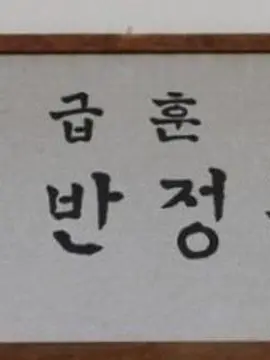 급 훈
반 정